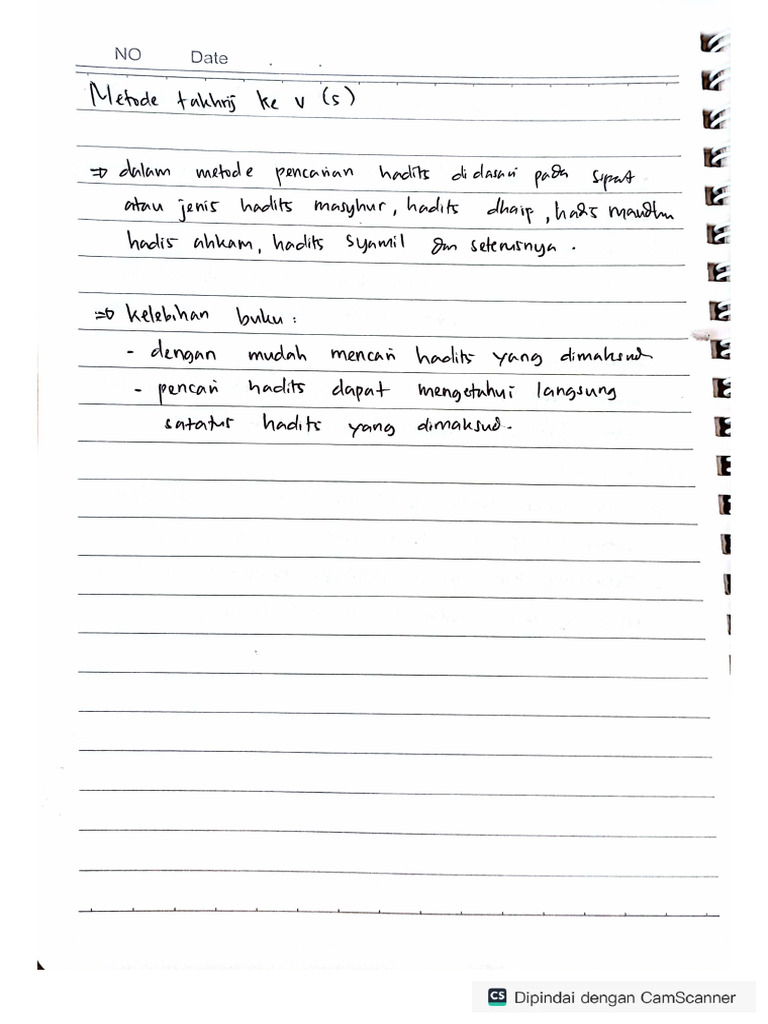 NO Date . .
Metode takhrij ke V (5)
⇒ dalam metode pencarian hadits didasari pada sipat
atau jenis hadits masyhur, hadits dhaip, hads maudhu
hadis ahkam, hadits syamil dan seterusnya.
⇒ kelebihan buku :
- dengan mudah mencari hadits yang dimaksud
- pencari hadits dapat mengetahui langsung
satatus hadits yang dimaksud.
CS Dipindai dengan CamScanner